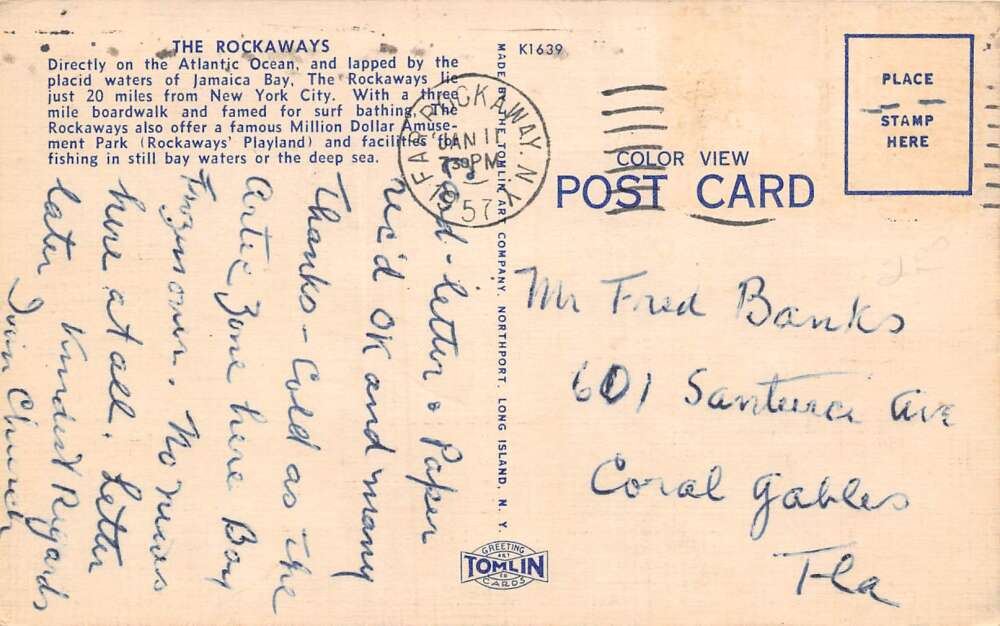 THE ROCKAWAYS
Directly on the Atlantic Ocean, and lapped by the
placid waters of Jamaica Bay, The Rockaways lie
just 20 miles from New York City. With a three
mile boardwalk and famed for surf bathing, The
Rockaways also offer a famous Million Dollar Amuse-
ment Park (Rockaways' Playland) and facilities for
fishing in still bay waters or the deep sea.
Card - Letter & Paper
rec'd OK and many
Thanks - Cold as the
Artic Zone here Bay
Frozen over. No news
here at all. Letter
later Kindest Regards
Church
MADE BY THE TOMLIN ART COMPANY, NORTHPORT, LONG ISLAND, N. Y.
K1639
FAR ROCKAWAY, N.Y.
JAN 11
730 PM
1957
PLACE
STAMP
HERE
COLOR VIEW
POST CARD
Mr Fred Banks
601 Ave
Coral Gables
Fla
GREETING
ART
TOMLIN
CARDS